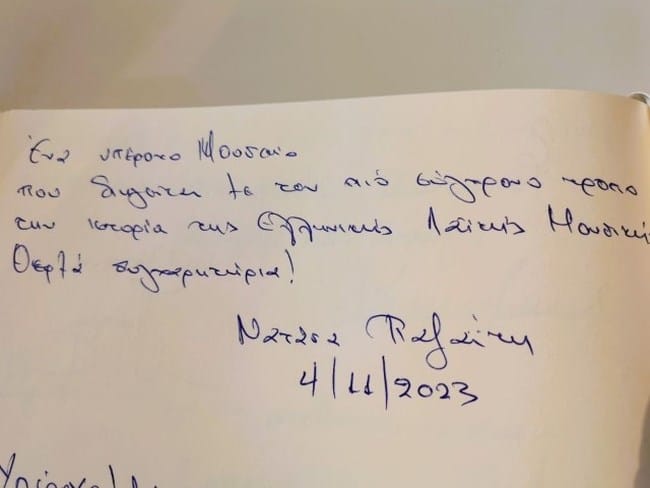 Ένα υπέροχο Μουσείο
που διηγείται με τον πιό σύγχρονο τρόπο
την ιστορία της Ελληνικής Λαϊκής Μουσικής
Θερμά συγχαρητήρια!
Νατάσα Παζαΐτη
4/11/2023
Υπέροχο!